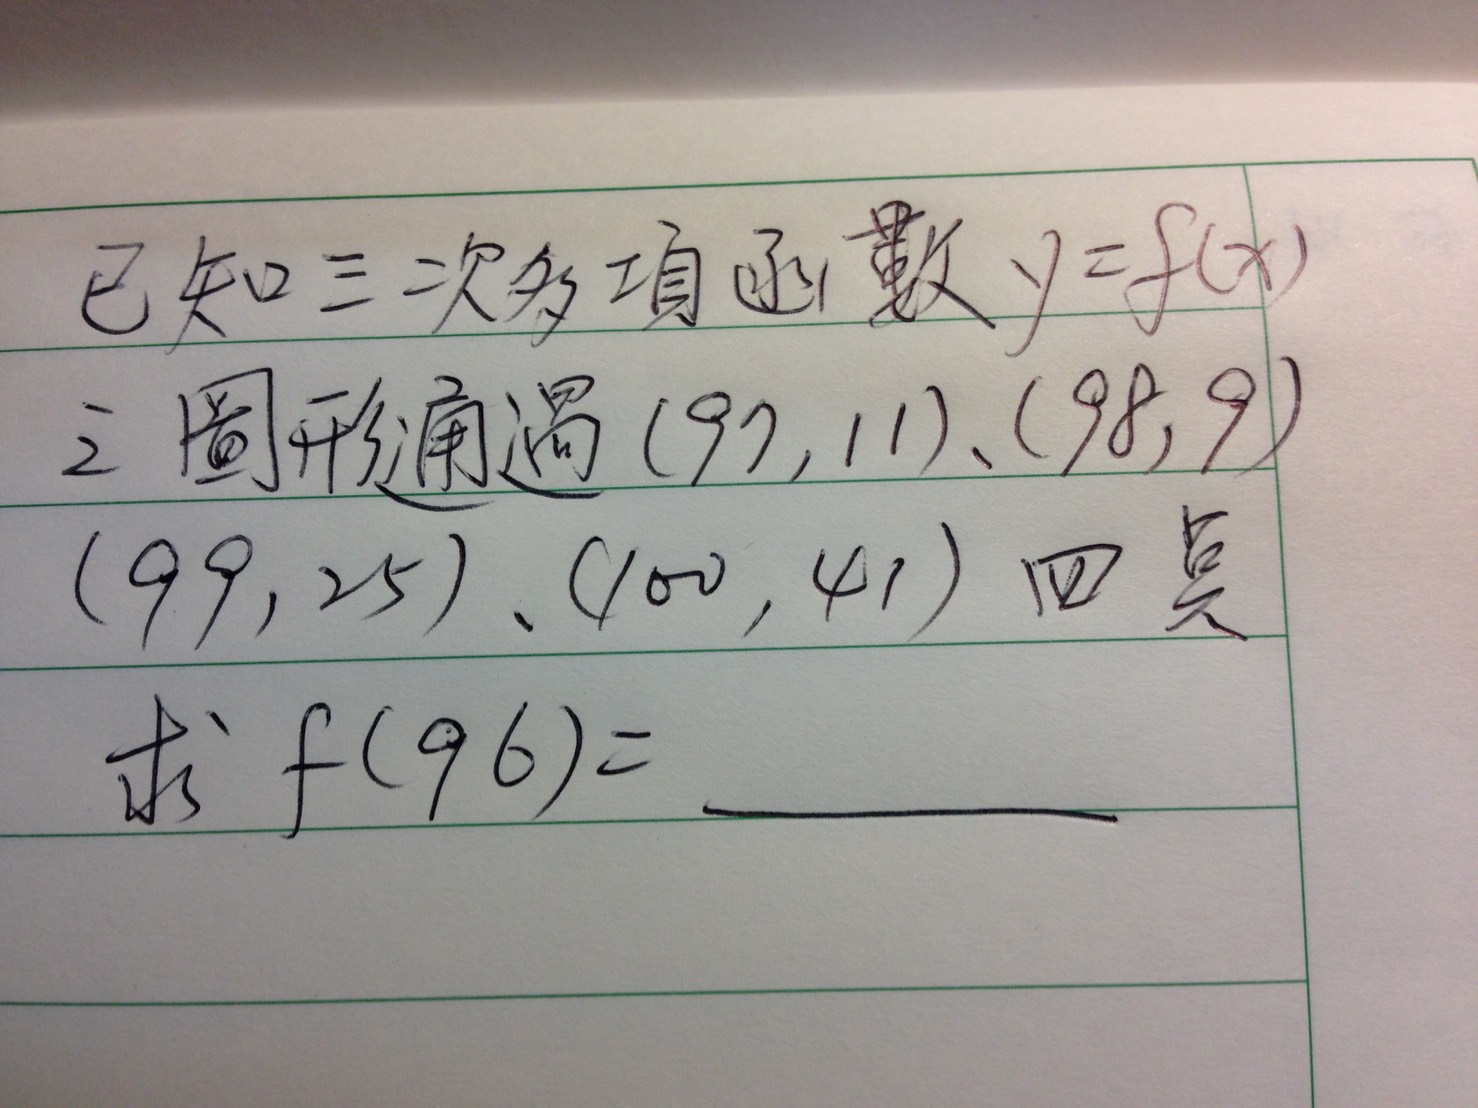 已知三次多項函數y=f(x)
之圖形通過(97,11)、(98,9)
(99,25)、(100,41)四点
求f(96)=